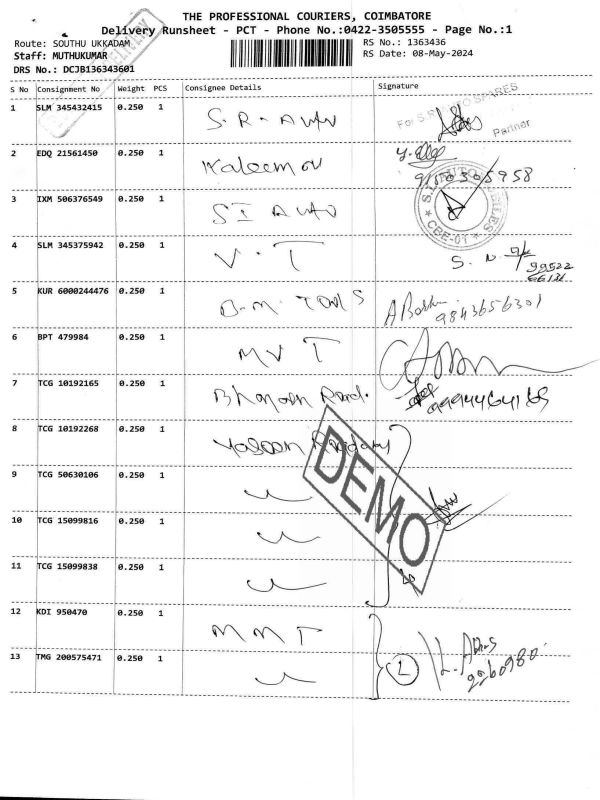 THE PROFESSIONAL COURIERS, COIMBATORE
Delivery Runsheet - PCT - Phone No.:0422-3505555 - Page No.:1
Route: SOUTHU UKKADAM
RS No.: 1363436
Staff: MUTHUKUMAR
RS Date: 08-May-2024
DRS No.: DCJB136343601
S No Consignment No Weight PCS Consignee Details Signature
1 SLM 345432415 0.250 1 S.R. AUTO
For S.R. AUTO SPARES
Partner
2 EDQ 21561450 0.250 1 Kaleem ov
3 IXM 506376549 0.250 1 SI AUTO
CBE-01
4 SLM 345375942 0.250 1 V. T
S. N
99522
66131
5 KUR 6000244476 0.250 1 B.M. TOOLS
9843656301
6 BPT 479984 0.250 1 M V T
7 TCG 10192165 0.250 1
9994464169
8 TCG 10192268 0.250 1
9 TCG 50630106 0.250 1
10 TCG 15099816 0.250 1
11 TCG 15099838 0.250 1
12 KDI 950470 0.250 1 M M T
13 TMG 200575471 0.250 1
DEMO